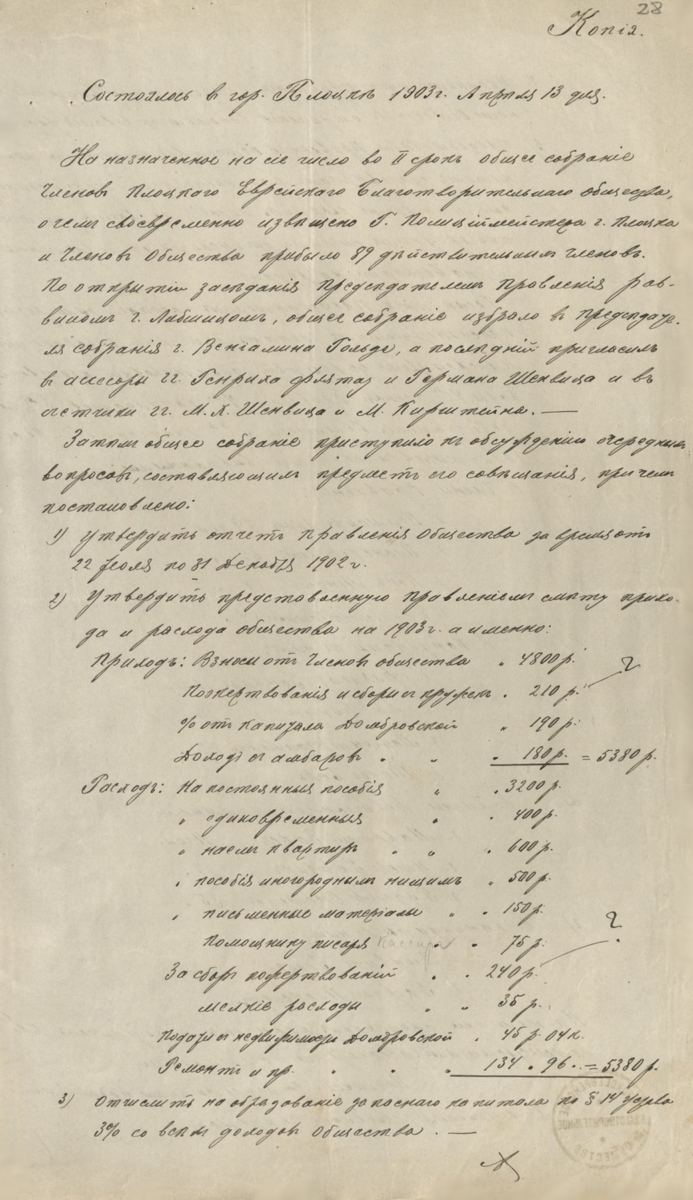 28
Копія.
Состоялось в гор. Плоцкѣ 1903 г. Апрѣля 13 дня.
На назначенное на сіе число во II срокъ общее собраніе
Членовъ Плоцкаго Еврейскаго Благотворительнаго общества,
о чемъ своевременно извѣщено Г. Полиціймейстера г. Плоцка
и Членовъ Общества прибыло 89 дѣйствительныхъ членовъ.
По открытіи засѣданія предсѣдателемъ Правленія рав-
виномъ г. Либшицомъ, общее собраніе избрало въ предсѣдате-
ля собранія г. Веніамина Гольде, а послѣдній пригласилъ
въ ассесоры гг. Генриха Флятау и Германа Шенвица и въ
счетчики гг. М. Л. Шенвица и М. Кирштейна. —
Затѣмъ общее собраніе приступило къ обсужденію очередныхъ
вопросовъ, составляющихъ предметъ его совѣщанія, причемъ
постановлено:
1) Утвердить отчетъ Правленія Общества за время отъ
22 Іюля по 31 Декабря 1902 г.
2) Утвердить представленную Правленіемъ смѣту прихо-
да и расхода общества на 1903 г. а именно:
Приходъ: Взносы отъ Членовъ общества " 4800 р.
Пожертвованія и сборы съ кружекъ " 210 р. ?
% отъ капитала Домбровской " 190 р.
Доходъ съ амбаровъ " " " 180 р. = 5380 р.
Расходъ: На постоянныя пособія " " 3200 р.
" единовременныя " " 400 р.
" наемъ квартиръ " " " 600 р.
" пособія иногороднымъ нищимъ " 500 р.
" письменные матеріалы " " 150 р.
Помощнику писаря " " 75 р. ?
За сборъ пожертвованій " " 240 р.
мелкіе расходы " " 35 р.
Подати съ недвижимости Домбровской " 45 р. 04 к.
Ремонтъ и пр. " " " 134 " 96 " = 5380 р.
3) Отчислить на образованіе запаснаго капитала по § 14 устава
3% со всѣхъ доходовъ Общества. —